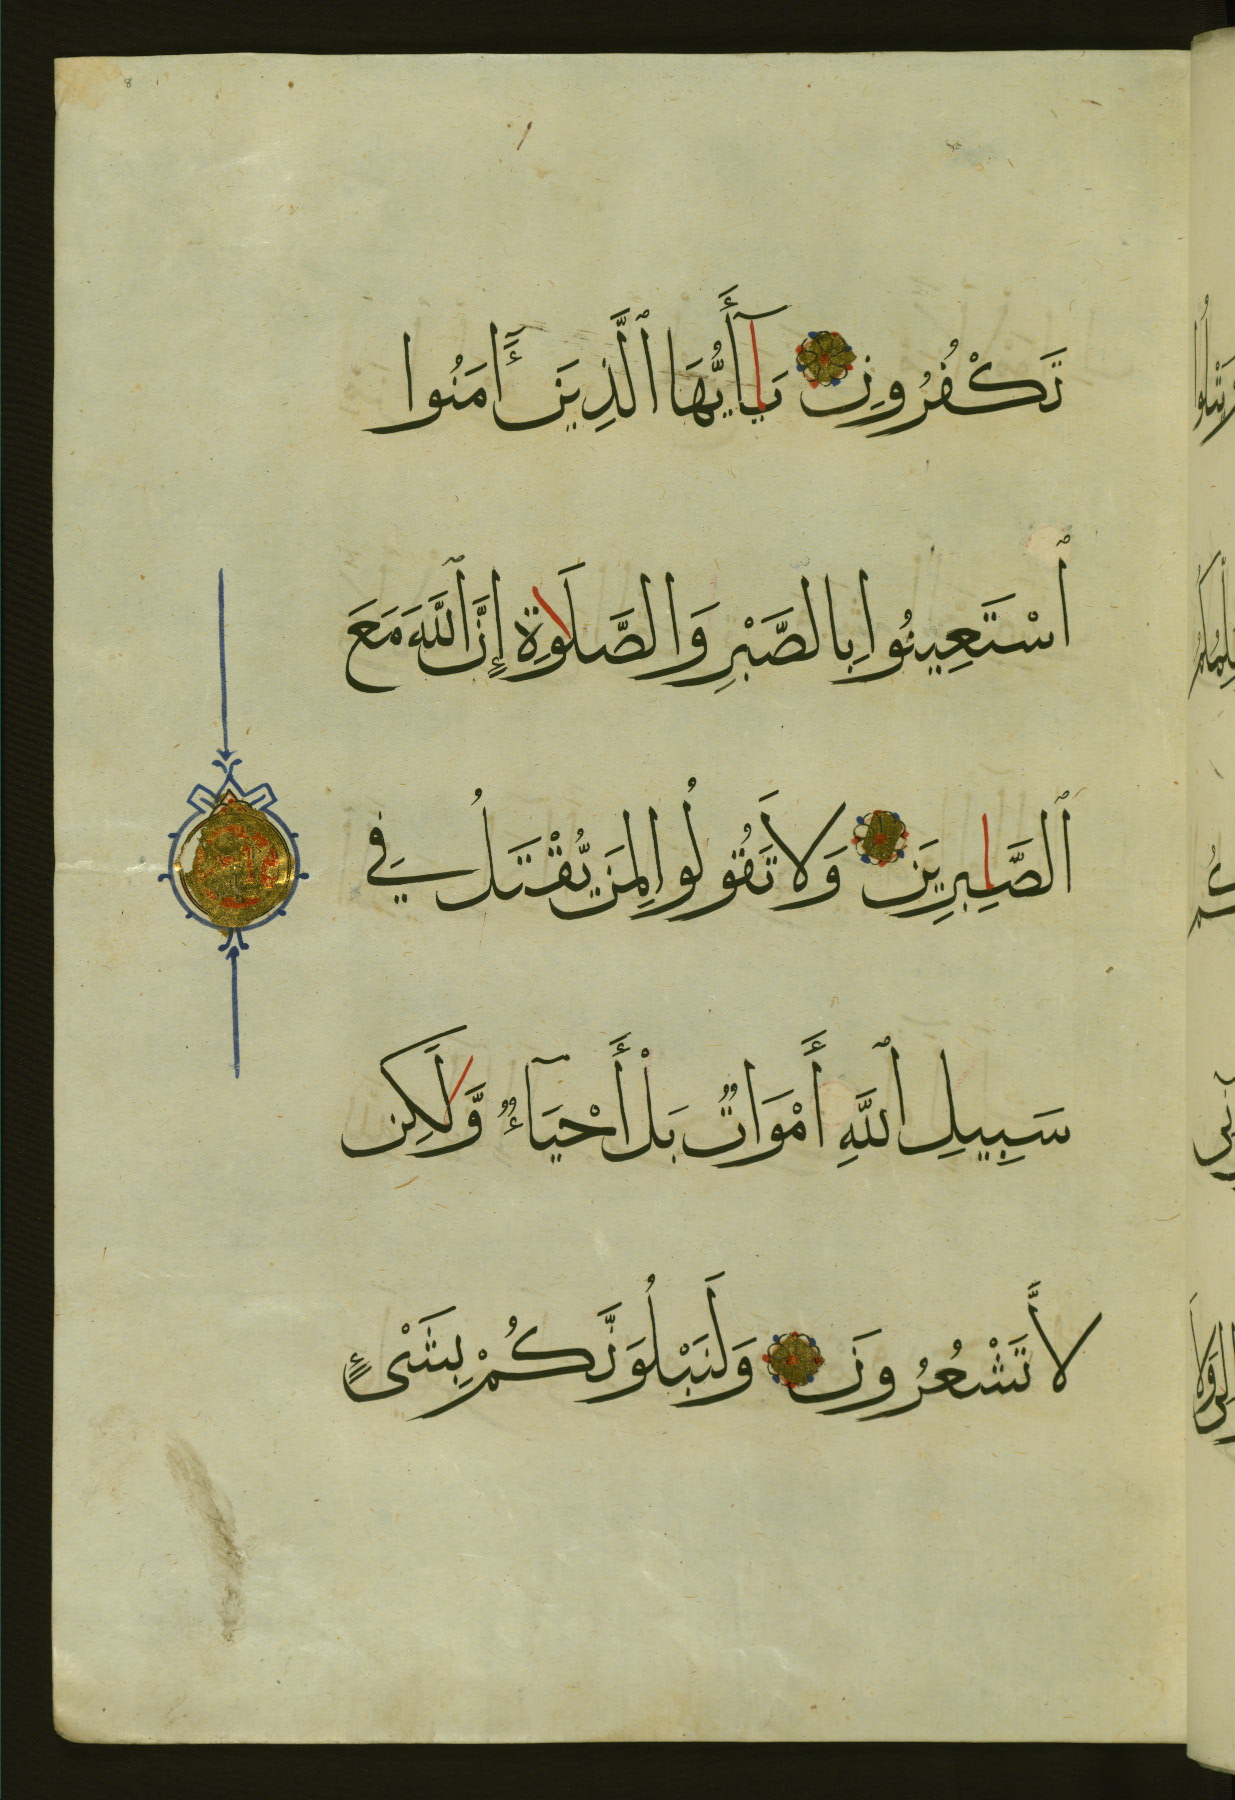 تَكْفُرُونِ يَٰٓأَيُّهَا ٱلَّذِينَ ءَامَنُوا
ٱسْتَعِينُوا بِالصَّبْرِ وَالصَّلَٰوةِ إِنَّ ٱللَّهَ مَعَ
ٱلصَّٰبِرِينَ وَلَا تَقُولُوا لِمَن يُّقْتَلُ فِي
سَبِيلِ ٱللَّهِ أَمْوَاتٌ بَلْ أَحْيَآءٌ وَّلَٰكِن
لَّا تَشْعُرُونَ وَلَنَبْلُوَنَّكُمْ بِشَىْءٍ